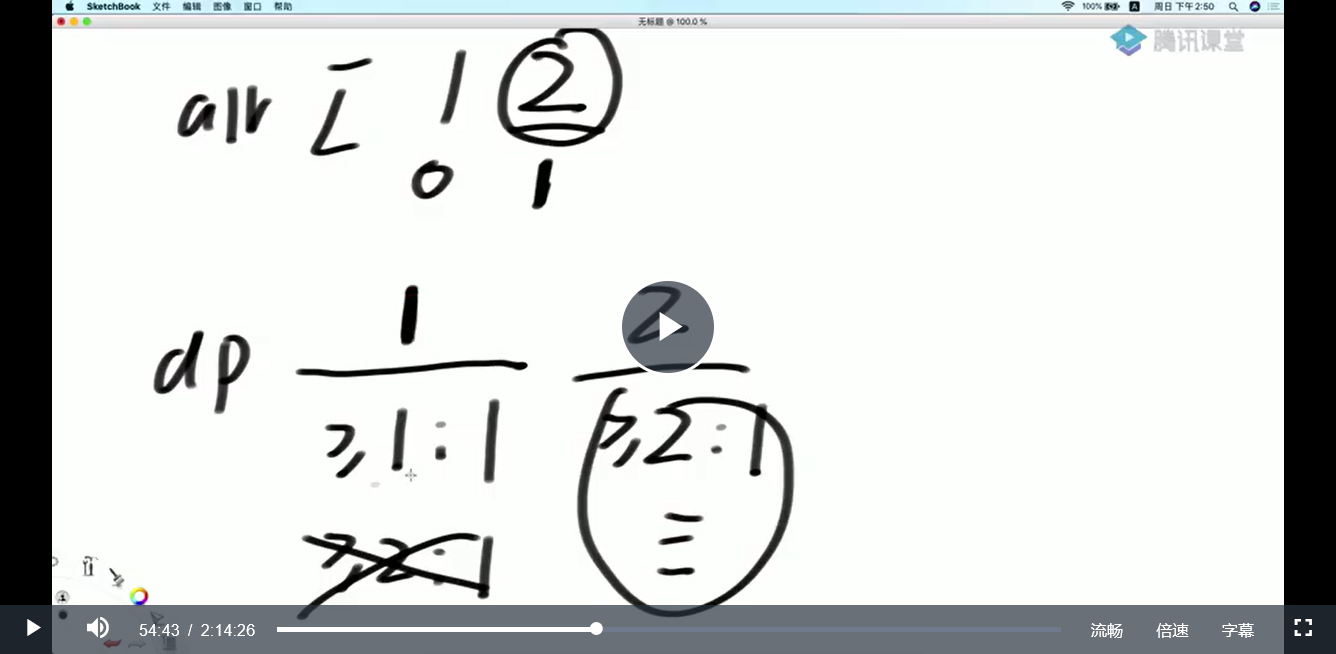 SketchBook 文件 编辑 图像 窗口 帮助 100% A 周日 下午2:50
无标题 @ 100.0 %
腾讯课堂
arr [ 1 2
0 1
dp 1 2
≥,1:1 ≥,2:1
≥,2:1
54:43 / 2:14:26 流畅 倍速 字幕